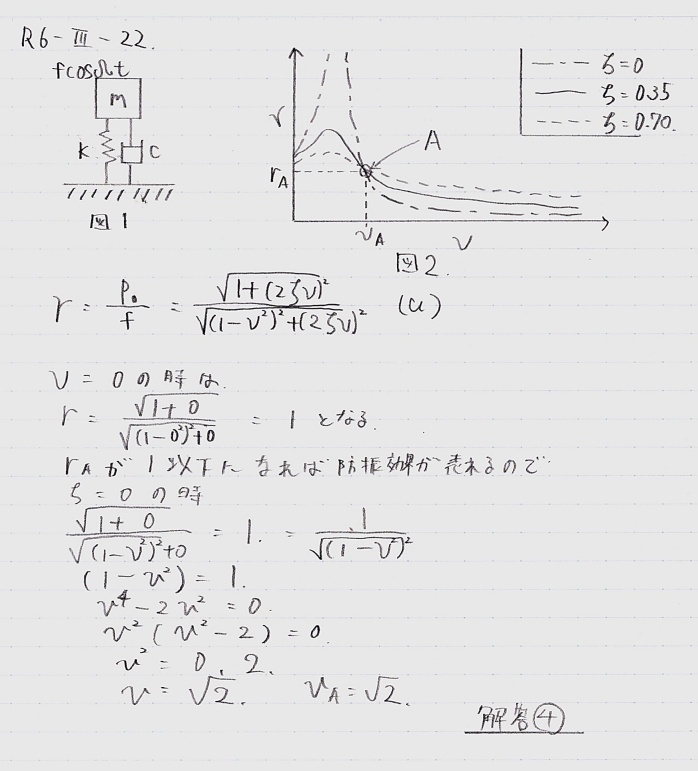 R6-Ⅲ-22.
fcosΩt
m
k
c
図1
r
r_A
A
ν_A
ν
図2.
ζ=0
ζ=0.35
ζ=0.70.
r = P₀/f = √(1+(2ζν)²) / √((1-ν²)²+(2ζν)²) (a)
ν = 0 の時は.
r = √(1+0) / √((1-0²)²+0) = 1 となる.
r_Aが1以下になれば防振効果が売れるので
ζ=0 の時
√(1+0) / √((1-ν²)²+0) = 1. = 1 / √(1-ν²)²
(1-ν²) = 1.
ν⁴-2ν² = 0.
ν²(ν²-2) = 0
ν² = 0, 2.
ν = √2. ν_A = √2.
解答④